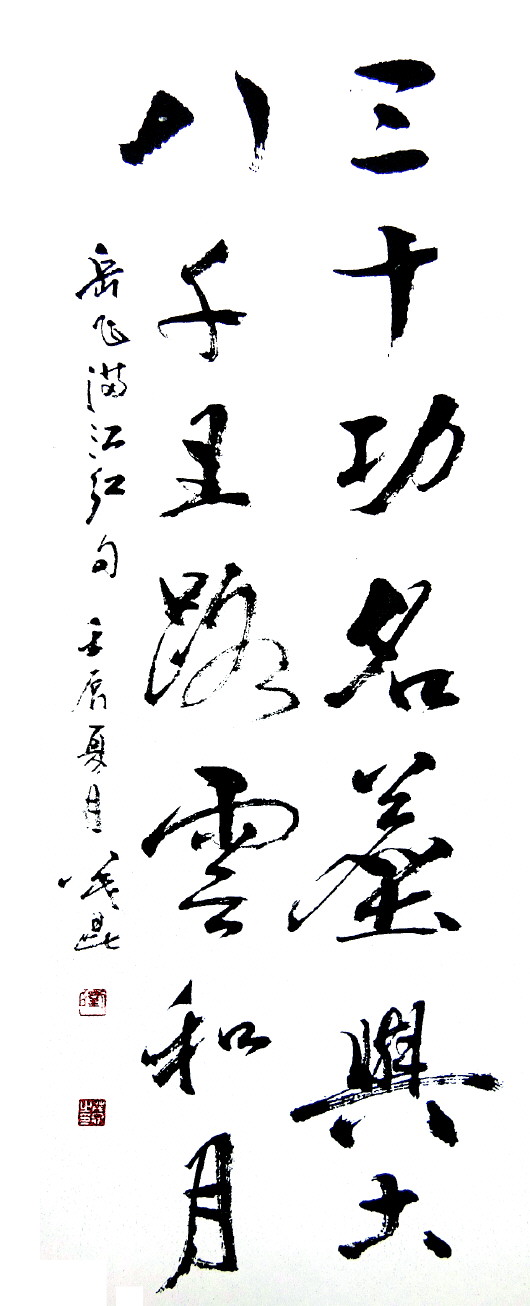 三十功名塵與土
八千里路雲和月
岳飞滿江红句 壬辰夏月